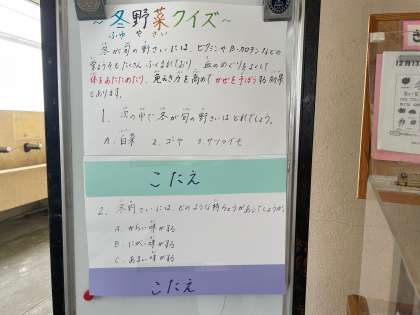 ～冬野菜クイズ～
ふゆ や さい
冬が旬の野さいには、ビタミンやβ-カロテンなどの
栄ようそがたくさんふくまれており、血のめぐりをよくして
体をあたためたり、免えき力を高めてかぜを予ぼうする効果
もあります。
1. 次の中で冬が旬の野さいはどれでしょう。
A. 白菜 2. ゴーヤ 3. サツマイモ
こたえ
2. 冬野さいには、どのような特ちょうがあるでしょうか。
A. からい味がする
B. にがい味がする
C. あまい味がする
こたえ
12月12